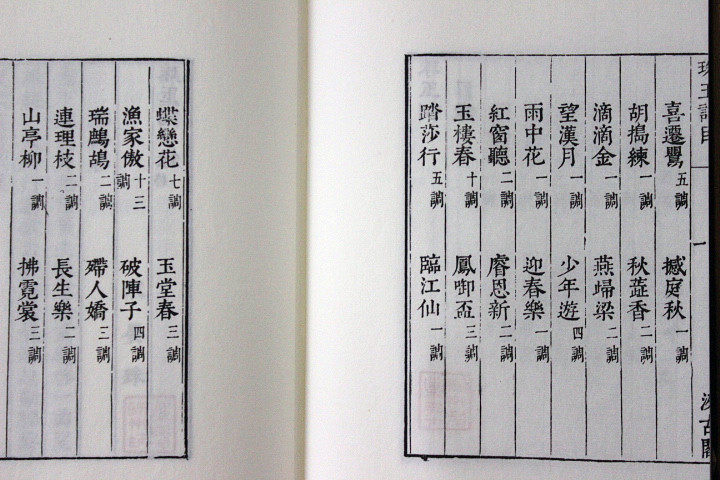 珠玉詞目 一 汲古閣
喜遷鶯 五調 撼庭秋 一調
胡搗練 一調 秋蕋香 二調
滴滴金 一調 燕歸梁 二調
望漢月 一調 少年遊 四調
雨中花 一調 迎春樂 一調
紅窗聽 二調 睿恩新 二調
玉樓春 十調 鳳啣盃 三調
踏莎行 五調 臨江仙 一調
蝶戀花 七調 玉堂春 三調
漁家傲 十三調 破陣子 四調
瑞鷓鴣 二調 殢人嬌 三調
連理枝 二調 長生樂 二調
山亭柳 一調 拂霓裳 三調